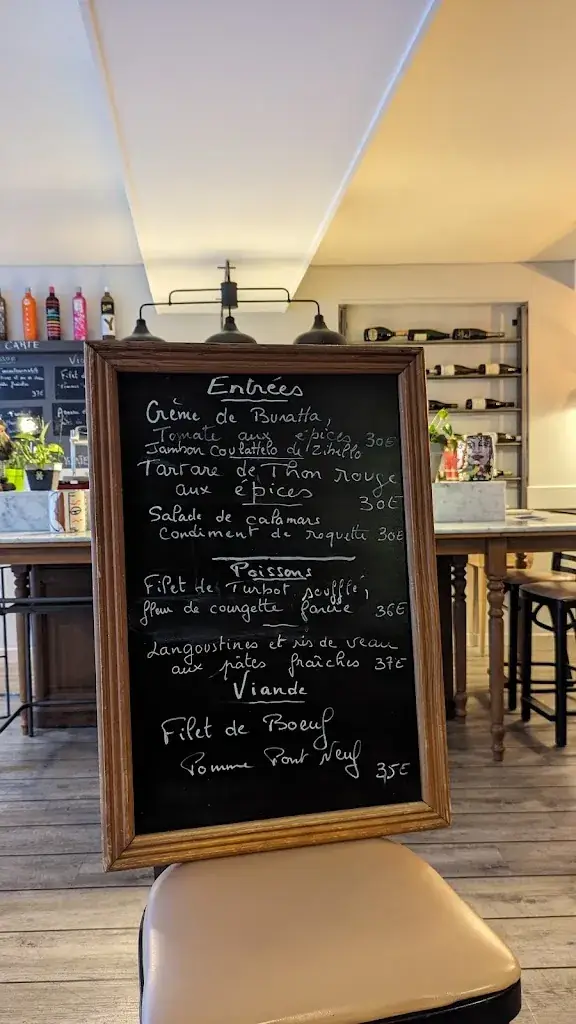 CARTE
Entrées
Crème de Buratta,
Tomate aux épices 30€
Jambon Coulattelo di Zibello
Tartare de Thon rouge
aux épices 30€
Salade de calamars
Condiment de roquette 30€
Poissons
Filet de Turbot soufflé,
fleur de courgette farcie 36€
Langoustines et ris de veau
aux pâtes fraîches 37€
Viande
Filet de Boeuf
Pomme Pont Neuf 35€